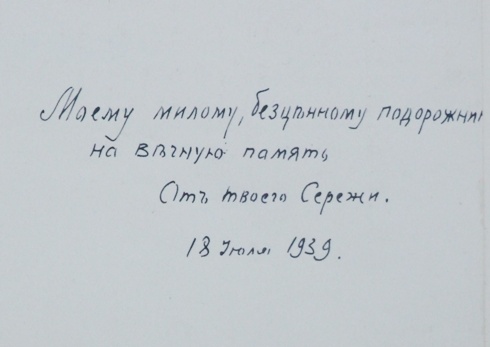 Маему милому, безцѣнному подорожни
на вѣчную память
Отъ твоего Сережи.
18 Июля 1939.